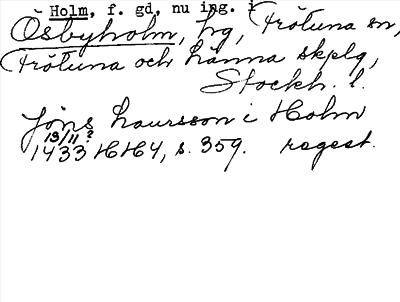 Holm, f. gd, nu ing. i
Ösbyholm, hg, Frötuna sn,
Frötuna och Länna skplg,
Stockh. l.
Jöns Laursson i Holm
13/11?
1433 HH4, s. 359. regest.